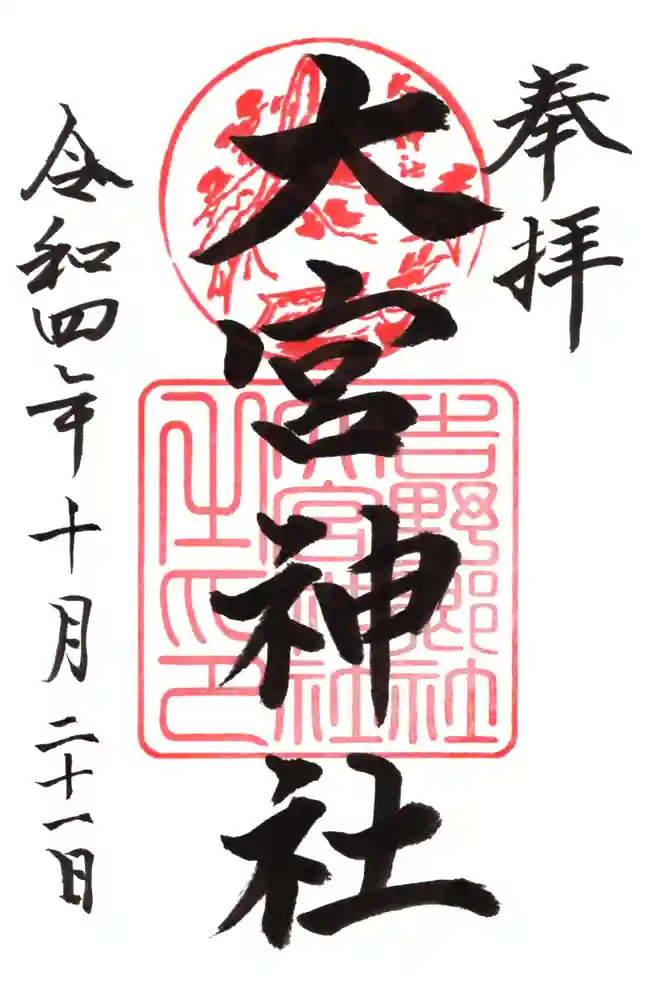 奉拝
大宮神社
吉野郷社
大宮神社
之印
令和四年十月二十一日